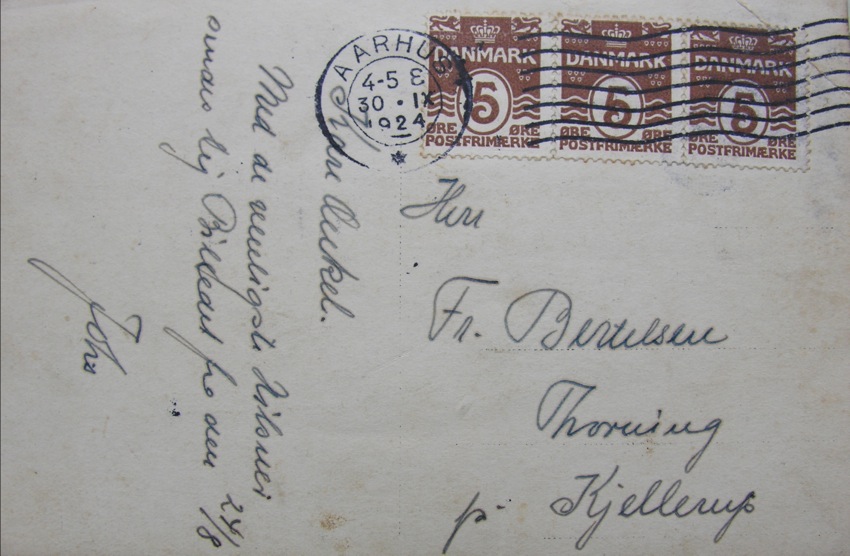 AARHUS
4-5 E
30 • IX
1924
DANMARK
5
ØRE ØRE
POSTFRIMÆRKE
DANMARK
5
ØRE ØRE
POSTFRIMÆRKE
DANMARK
5
ØRE ØRE
POSTFRIMÆRKE
Herr
Fr. Bertelsen
Thorning
p. Kjellerup
Kære Onkel.
Med de venligste Hilsner
sendes dig Billedet fra den 24/8
Johs